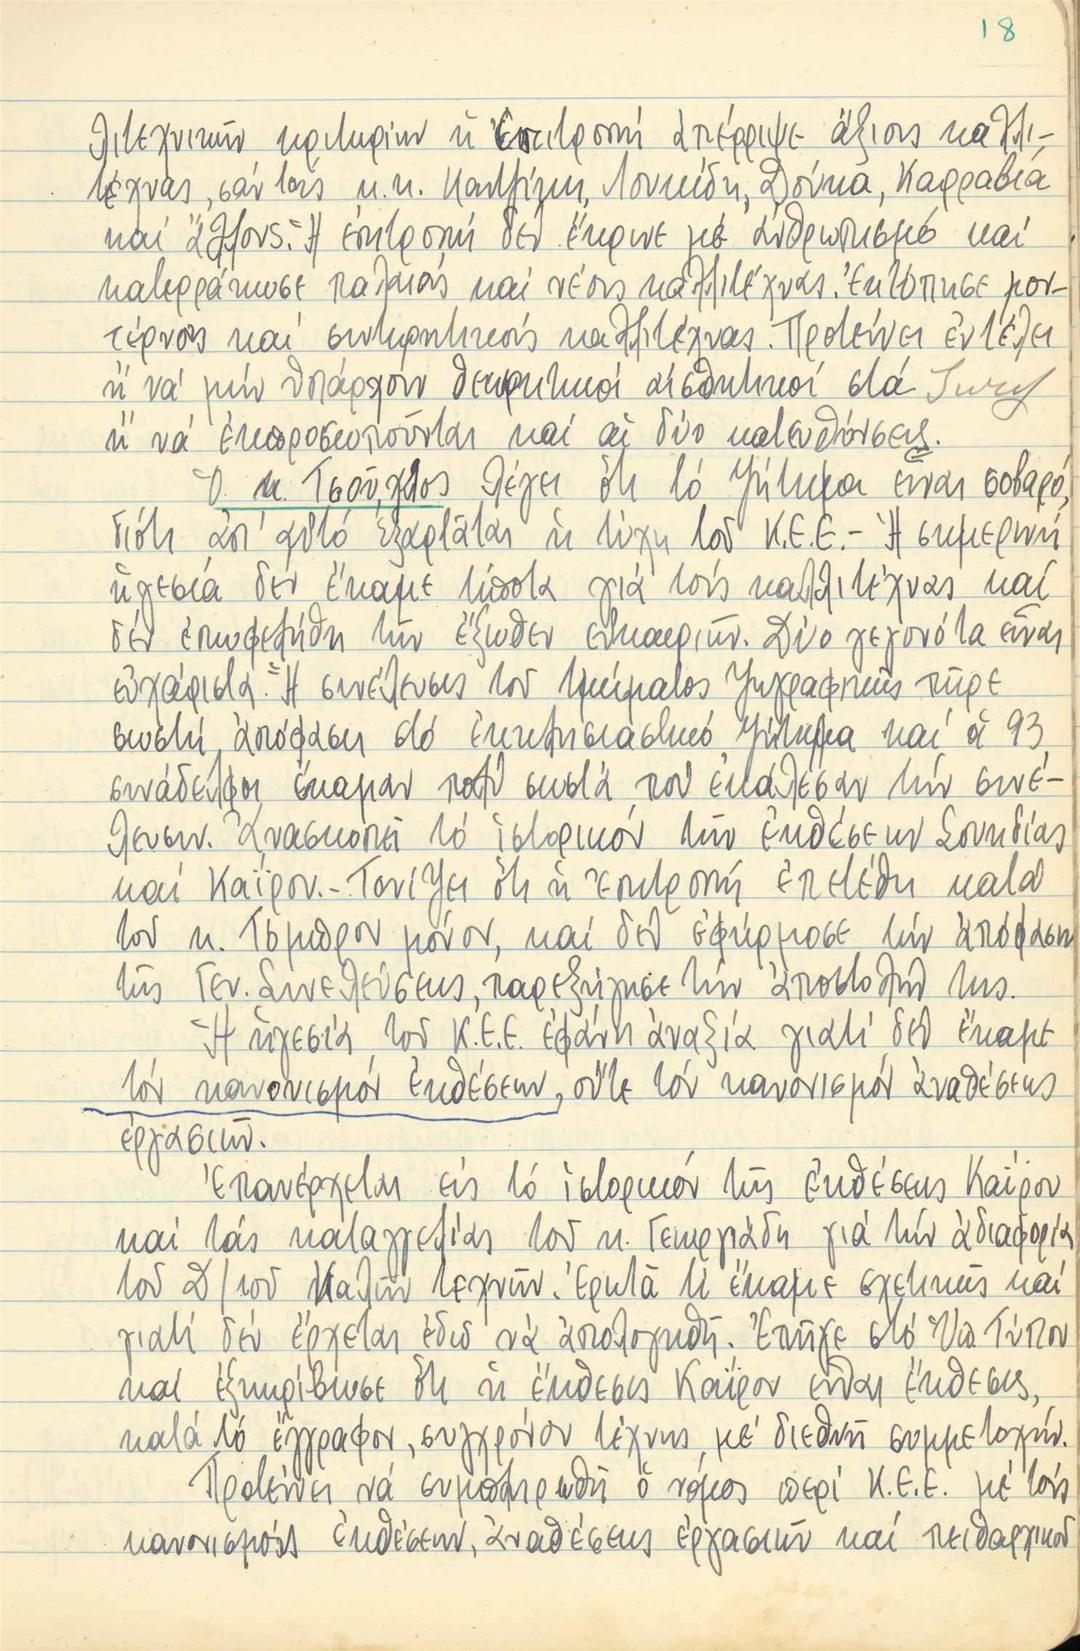 18
λιτεχνικῶν κριτηρίων ἡ Ἐπιτροπή ἀπέρριψε ἀξίους καλλι-
τέχνας, σάν τούς κ.κ. Κανζίκη, Λουκίδη, Δούκα, Καφραβία
καί ἄλλους. Ἡ ἐπιτροπή δέν ἔκρινε μέ ἀνθρωπισμό καί
κατερράκωσε παλαιούς καί νέους καλλιτέχνας. Ἐκτόπησε μον-
τέρνους καί συντηρητικούς καλλιτέχνας. Προτείνει ἐν τέλει
ἤ νά μήν ὑπάρχουν θεωρητικοί αἰσθητικοί στά
ἤ νά ἐκπροσωποῦνται καί αἱ δύο κατευθύνσεις.
Ὁ κ. Τσούχλος λέγει ὅτι τό ζήτημα εἶναι σοβαρό,
διότι ἀπ' αὐτό ἐξαρτᾶται ἡ τύχη τοῦ Κ.Ε.Ε.- Ἡ σημερινή
ἡγεσία δέν ἔκαμε τίποτα γιά τούς καλλιτέχνας καί
δέν ἐπωφελήθη τῶν ἔξωθεν εὐκαιριῶν. Δύο γεγονότα εἶναι
εὐχάριστα. Ἡ συνέλευσις τοῦ τμήματος ζωγραφικῆς πῆρε
σωστή ἀπόφαση στό ἐκκλησιαστικό ζήτημα καί οἱ 93
συνάδελφοι ἔκαμαν πολύ σωστά πού ἐκάλεσαν τήν συνέ-
λευσιν. Ἀνασκοπεῖ τό ἱστορικόν τῶν ἐκθέσεων Σουηδίας
καί Καΐρου.- Τονίζει ὅτι ἡ Ἐπιτροπή ἐπετέθη κατά
τοῦ κ. Τόμπρου μόνον, καί δέν ἐφήρμοσε τήν ἀπόφαση
τῆς Γεν. Συνελεύσεως, παρεξήγησε τήν ἀποστολήν της.
Ἡ ἡγεσία τοῦ Κ.Ε.Ε. ἐφάνη ἀναξία γιατί δέν ἔκαμε
τόν κανονισμόν ἐκθέσεων, οὔτε τόν κανονισμόν ἀναθέσεως
ἐργασιῶν.
Ἐπανέρχεται εἰς τό ἱστορικόν τῆς ἐκθέσεως Καΐρου
καί τάς καταγγελίας τοῦ κ. Γεωργιάδη γιά τήν ἀδιαφορία
τοῦ Δ/τοῦ Καλῶν τεχνῶν. Ἐρωτᾶ τί ἔκαμε σχετικῶς καί
γιατί δέν ἔρχεται ἐδῶ νά ἀπολογηθῆ. Ἐπῆγε στό Ὑπ. Τύπου
καί ἐξηκρίβωσε ὅτι ἡ ἔκθεσις Καΐρου εἶναι ἔκθεσις,
κατά τό ἔγγραφον, συγχρόνου τέχνης, μέ διεθνῆ συμμετοχήν.
Προτείνει νά συμπληρωθῆ ὁ νόμος περί Κ.Ε.Ε. μέ τούς
κανονισμούς ἐκθέσεων, ἀναθέσεως ἐργασιῶν καί πειθαρχικοῦ